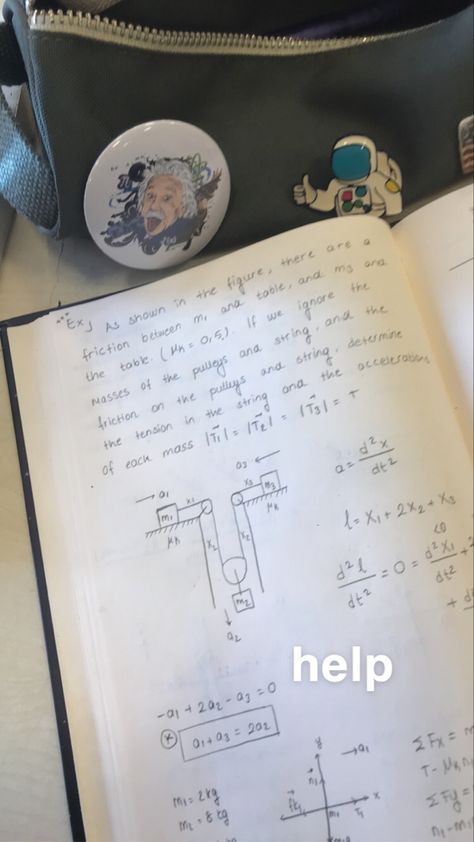 Ex) As shown in the figure, there are a
friction between m₁ and table, and m₃ and
the table. (μk = 0,5). If we ignore the
masses of the pulleys and string, and the
friction on the pulleys and string, determine
the tension in the string and the accelerations
of each mass |T⃗₁| = |T⃗₂| = |T⃗₃| = T
a = d²x/dt²
→ a₁
a₃ ←
m₁ x₁
x₃ m₃
μk
μk
x₂
x₂
m₂
a₂
l = x₁ + 2x₂ + x₃
<0
d²l/dt² = 0 = d²x₁/dt² + 2
+
help
-a₁ + 2a₂ - a₃ = 0
* a₁ + a₃ = 2a₂
m₁ = 2kg
m₂ = 8kg
y
→ a₁
n₁
x
fk₁
T₁
m₁
ΣFx = m
T - μk n₁
ΣFy =
n₁ - m₁